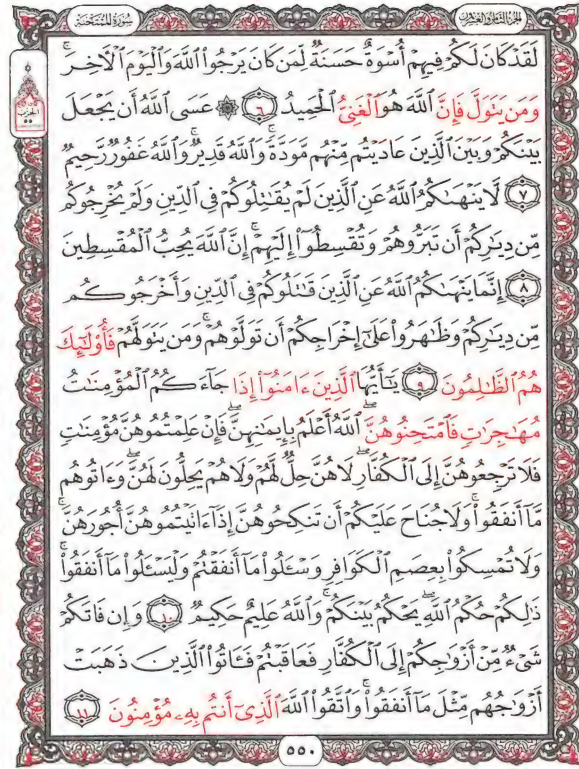 الجزء الثامن والعشرون
سورة الممتحنة
لَقَدْ كَانَ لَكُمْ فِيهِمْ أُسْوَةٌ حَسَنَةٌ لِّمَن كَانَ يَرْجُوا۟ ٱللَّهَ وَٱلْيَوْمَ ٱلْءَاخِرَ ۚ
وَمَن يَتَوَلَّ فَإِنَّ ٱللَّهَ هُوَ ٱلْغَنِىُّ ٱلْحَمِيدُ ٦ ۞ عَسَى ٱللَّهُ أَن يَجْعَلَ
بَيْنَكُمْ وَبَيْنَ ٱلَّذِينَ عَادَيْتُم مِّنْهُم مَّوَدَّةً ۚ وَٱللَّهُ قَدِيرٌ ۚ وَٱللَّهُ غَفُورٌ رَّحِيمٌ
٧ لَّا يَنْهَىٰكُمُ ٱللَّهُ عَنِ ٱلَّذِينَ لَمْ يُقَٰتِلُوكُمْ فِى ٱلدِّينِ وَلَمْ يُخْرِجُوكُم
مِّن دِيَٰرِكُمْ أَن تَبَرُّوهُمْ وَتُقْسِطُوٓا۟ إِلَيْهِمْ ۚ إِنَّ ٱللَّهَ يُحِبُّ ٱلْمُقْسِطِينَ
٨ إِنَّمَا يَنْهَىٰكُمُ ٱللَّهُ عَنِ ٱلَّذِينَ قَٰتَلُوكُمْ فِى ٱلدِّينِ وَأَخْرَجُوكُم
مِّن دِيَٰرِكُمْ وَظَٰهَرُوا۟ عَلَىٰٓ إِخْرَاجِكُمْ أَن تَوَلَّوْهُمْ ۚ وَمَن يَتَوَلَّهُمْ فَأُو۟لَٰٓئِكَ
هُمُ ٱلظَّٰلِمُونَ ٩ يَٰٓأَيُّهَا ٱلَّذِينَ ءَامَنُوٓا۟ إِذَا جَآءَكُمُ ٱلْمُؤْمِنَٰتُ
مُهَٰجِرَٰتٍ فَٱمْتَحِنُوهُنَّ ۖ ٱللَّهُ أَعْلَمُ بِإِيمَٰنِهِنَّ ۖ فَإِنْ عَلِمْتُمُوهُنَّ مُؤْمِنَٰتٍ
فَلَا تَرْجِعُوهُنَّ إِلَى ٱلْكُفَّارِ ۖ لَا هُنَّ حِلٌّ لَّهُمْ وَلَا هُمْ يَحِلُّونَ لَهُنَّ ۖ وَءَاتُوهُم
مَّآ أَنفَقُوا۟ ۚ وَلَا جُنَاحَ عَلَيْكُمْ أَن تَنكِحُوهُنَّ إِذَآ ءَاتَيْتُمُوهُنَّ أُجُورَهُنَّ ۚ
وَلَا تُمْسِكُوا۟ بِعِصَمِ ٱلْكَوَافِرِ وَسْـَٔلُوا۟ مَآ أَنفَقْتُمْ وَلْيَسْـَٔلُوا۟ مَآ أَنفَقُوا۟ ۚ
ذَٰلِكُمْ حُكْمُ ٱللَّهِ ۖ يَحْكُمُ بَيْنَكُمْ ۚ وَٱللَّهُ عَلِيمٌ حَكِيمٌ ١٠ وَإِن فَاتَكُمْ
شَىْءٌ مِّنْ أَزْوَٰجِكُمْ إِلَى ٱلْكُفَّارِ فَعَاقَبْتُمْ فَـَٔاتُوا۟ ٱلَّذِينَ ذَهَبَتْ
أَزْوَٰجُهُم مِّثْلَ مَآ أَنفَقُوا۟ ۚ وَٱتَّقُوا۟ ٱللَّهَ ٱلَّذِىٓ أَنتُم بِهِۦ مُؤْمِنُونَ ١١
٥٥٠